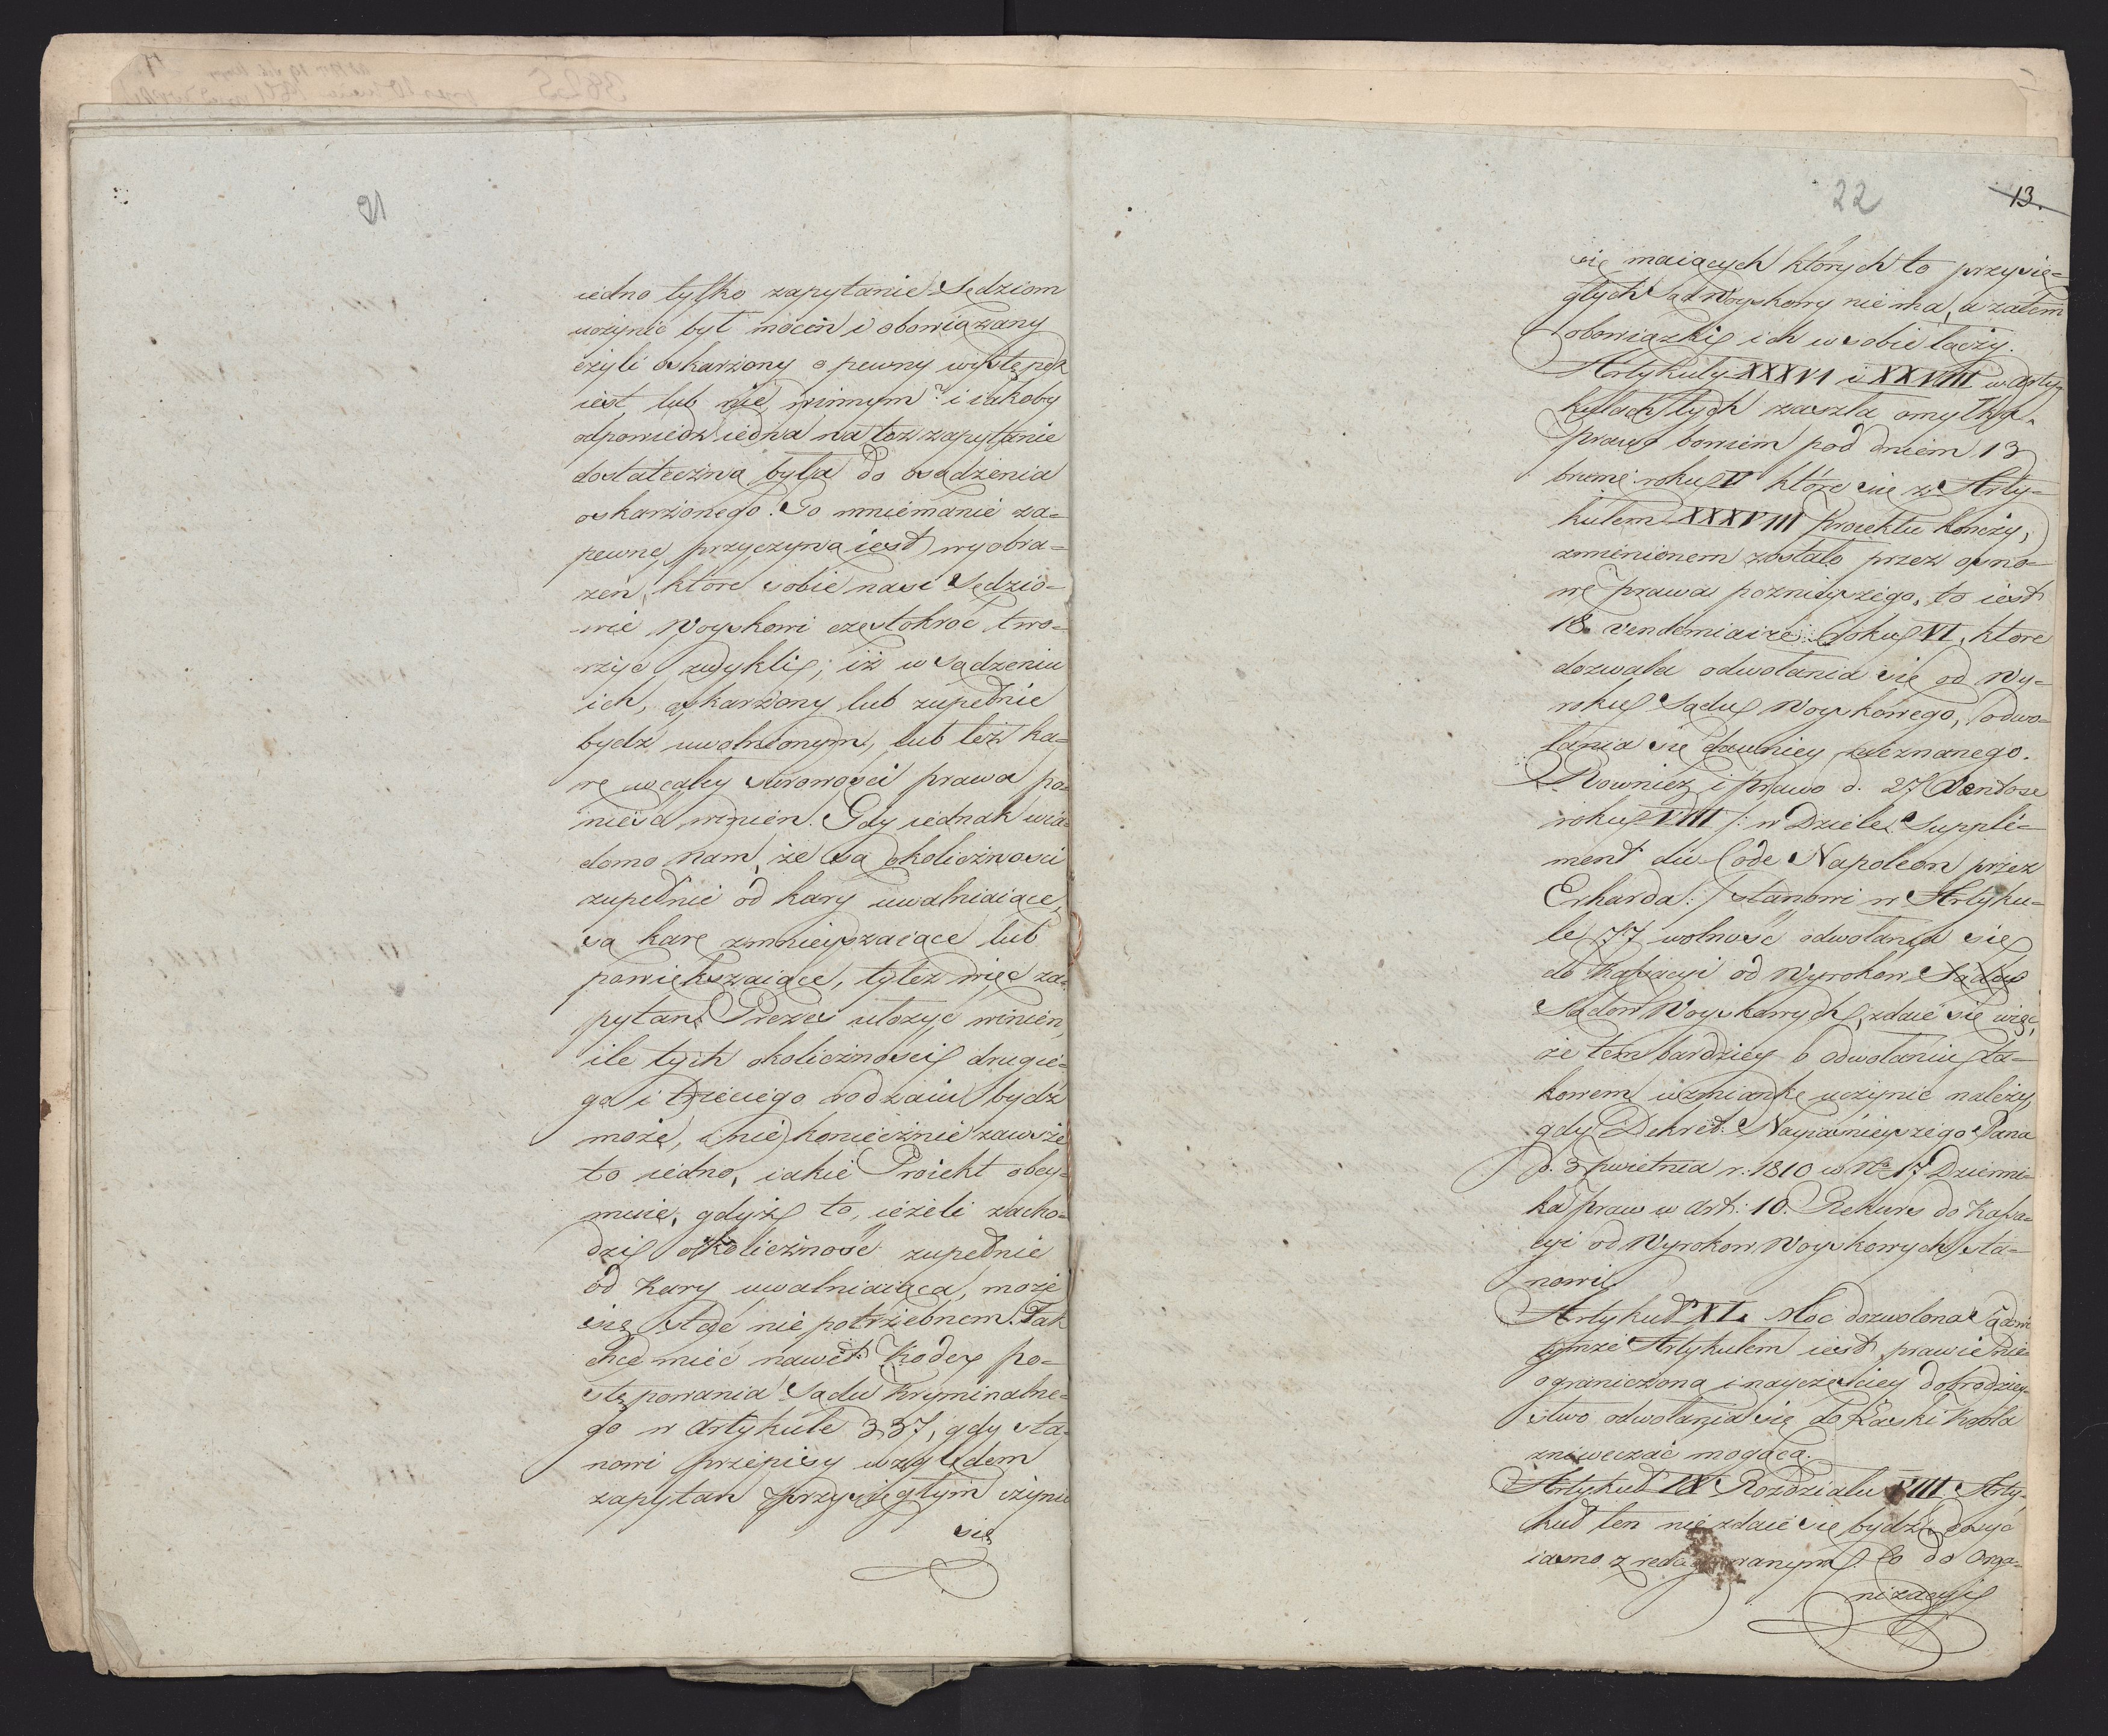 iedno tylko zapytanie Sędziom
uczynić był mocen i obowiązany
czyli oskarżony o pewny występek
iest, lub nie, winnym? i iakoby
odpowiedź iedna na toż zapytanie
dostateczną była do osądzenia
oskarżonego. To mniemanie za=
pewne przyczyną iest wyobra=
żeń, które sobie nasi Sędzio=
wie Woyskowi częstokroć two=
rzyć zwykli; iż w sądzeniu
ich, oskarżony lub zupełnie
bydź uwolnionym, lub też ka=
rę w całey surowości prawa po=
nieść winien. Gdy iednak wia=
domo nam, że są okoliczności
zupełnie od kary uwalniaiące,
są karę zmnieyszaiące lub
powiększaiące, tyleż więc za=
pytań Prezes ułożyć winien,
ile tych okoliczności drugie=
go i trzeciego rodzaiu bydź
może, i nie koniecznie zawsze
to iedno, iakie Proiekt obey=
muie, gdyż to, ieżeli zacho=
dzi okoliczność zupełnie
od kary uwalniaiąca, może
się stać nie potrzebnem. Tak
chce mieć nawet Kodex po=
stępowania Sądu Kryminalne=
go w Artykule 337, gdy sta=
nowi przepisy względem
zapytań przysięgłym czynić
się
22
13.
się maiących których to przysię=
głych Sąd Woyskowy nie ma, a zatem
obowiązki ich w sobie łączy.
Artykuły XXXVI i XXXVIII w Arty=
kułach tych zaszła omyłka.
prawo bowiem pod dniem 13
brume: roku V które się z Arty=
kułem XXXVIII Proiektu kończy,
zmienionem zostało przez osno=
wę prawa poznieyszego, to iest
18. vendemiaire roku VI, które
dozwala odwołania się od Wy=
roku Sądu Woyskowego, odwo=
łania się dawniey nieznanego.
Rownież i prawo d. 27 Ventose
roku VIII /: w Dziele Suppli=
ment du Code Napoleon przez
Erharda :/ stanowi w Artyku=
le 77 wolność odwołania się
do Kassacyi od Wyrokow Sądu
Sądow Woyskowych, zdaie się więc,
że tem bardziey o odwołaniu ta=
kowem wzmiankę uczynić należy,
gdy Dekret Nayiaśnieyszego Pana
d. 3 kwietnia r. 1810 w No 17 Dzienni=
ka praw w art: 10. Rekurs do Kassa=
cyi od Wyrokow Woyskowych sta=
nowi.
Artykuł XL. Moc dozwolona Sądowi
tymże Artykułem iest prawie nie
ograniczoną i nayczęściey dobrodziey=
stwo odwołania się do Łaski Króla
zniweczać mogącą.
Artykuł IX Rozdziału VIII Arty=
kuł ten nie zdaie się bydź dosyć
iasno zredagowanym. Co do Orga=
nizacyi